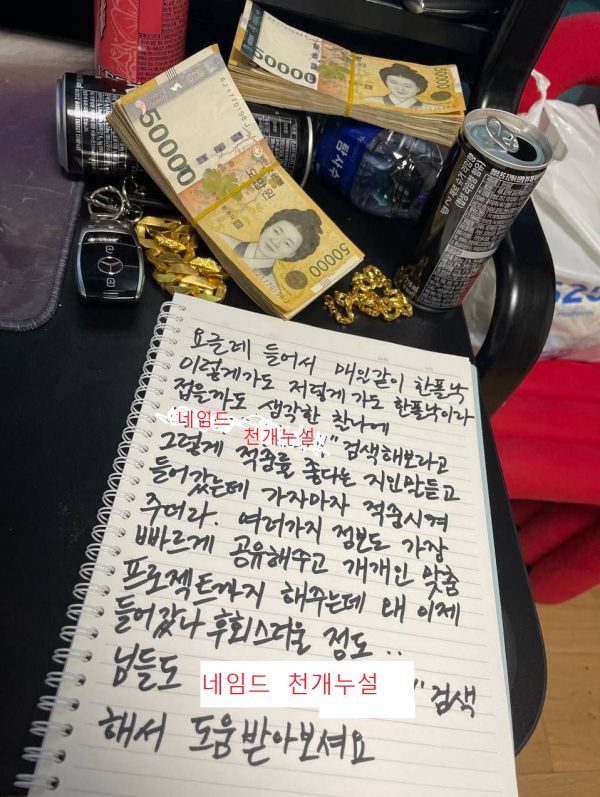 50000
50000
EJ1770198J
50000
50000
탐사수
요근레 들어서 매일같이 한폴낙
이렇게가도 저렇게 가도 한폴낙이라
접을까도 생각한 찬나에
네임드 천개누설!!" 검색해보라고
그렇게 적중률 좋다는 지인말듣고
들어갔는데 가자마자 적중시켜
주더라. 여러가지 정보도 가장
빠르게 공유해주고 개개인 맞춤
프로젝트까지 해주는데 왜 이제
들어갔나 후회스러울 정도..
님들도 네임드 천개누설" 검색
해서 도움받아보셔요